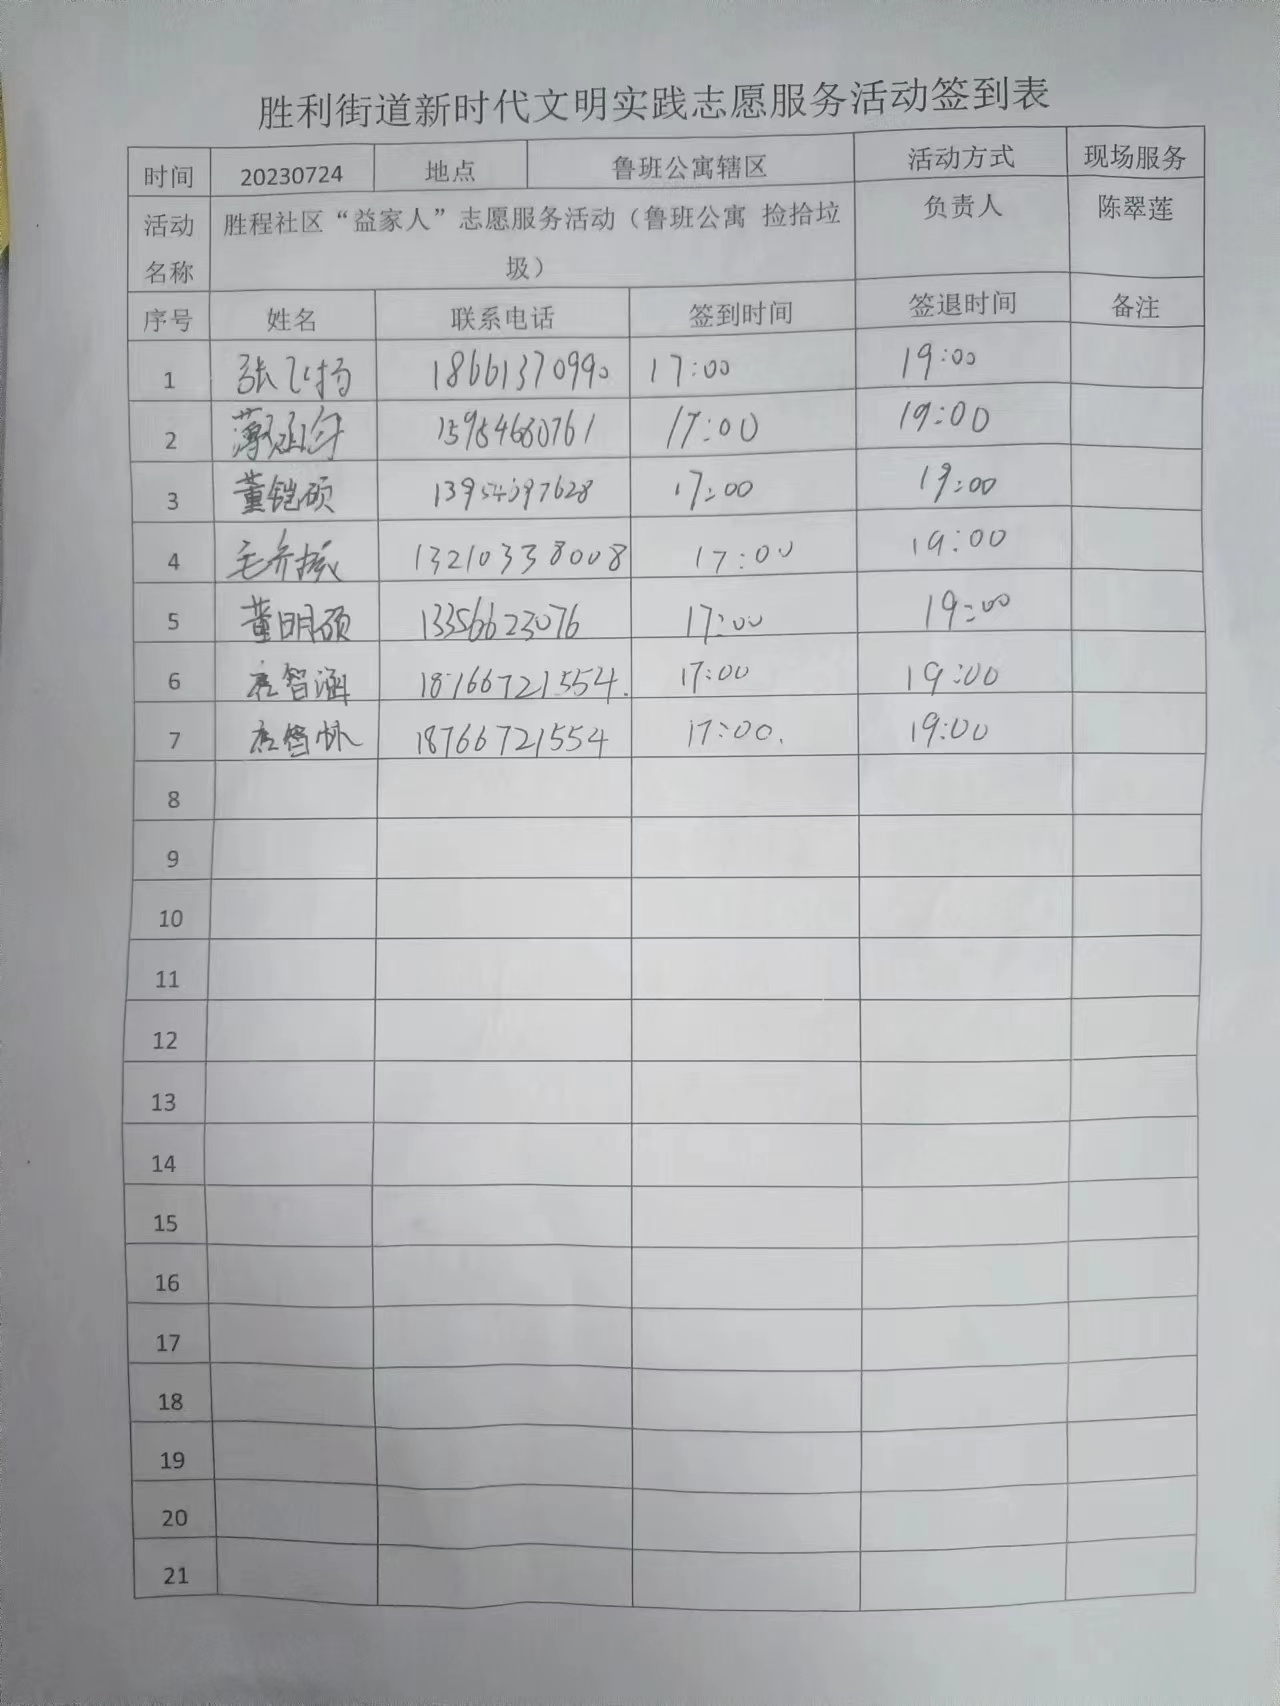 胜利街道新时代文明实践志愿服务活动签到表
时间 20230724 地点 鲁班公寓辖区 活动方式 现场服务
活动名称 胜程社区“益家人”志愿服务活动（鲁班公寓 捡拾垃圾） 负责人 陈翠莲
序号 姓名 联系电话 签到时间 签退时间 备注
1 张飞扬 18661370990 17:00 19:00
2 15954680761 17:00 19:00
3 董铠硕 17:00 19:00
4 13210338008 17:00 19:00
5 董明硕 13356623076 17:00 19:00
6 智涵 18766721554. 17:00 19:00
7 18766721554 17:00. 19:00
8
9
10
11
12
13
14
15
16
17
18
19
20
21